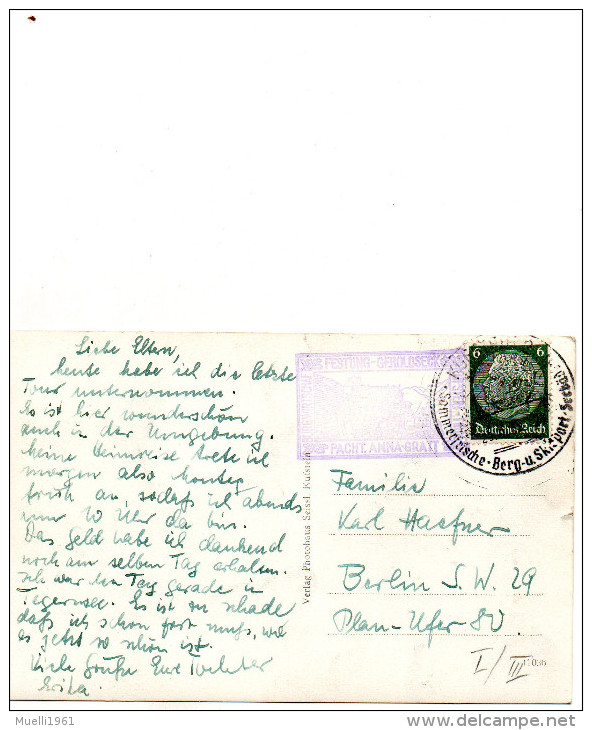 Liebe Eltern,
heute habe ich die letzte
Tour unternommen.
Es ist hier wunderschön
auch in der Umgebung.
Meine Heimreise trete ich
morgen also Montag
früh an, sodaß ich abends
um 10 Uhr da bin.
Das Geld habe ich dankend
noch am selben Tag erhalten.
Ich war den Tag gerade in
Tegernsee. Es ist zu schade
daß ich schon fort muß, wo
es jetzt so schön ist.
Viele Grüße Eure Tochter
Erika.
FESTUNG-GEROLDSECK
PACHT. ANNA GRATT
6 6
Deutsches Reich
Sommerfrische · Berg- u. Ski-sport
Verlag Photohaus Kufstein
Familie
Karl Haefner
Berlin S.W. 29
Plan-Ufer
I/III
Muelli1961
www.delcampe.net